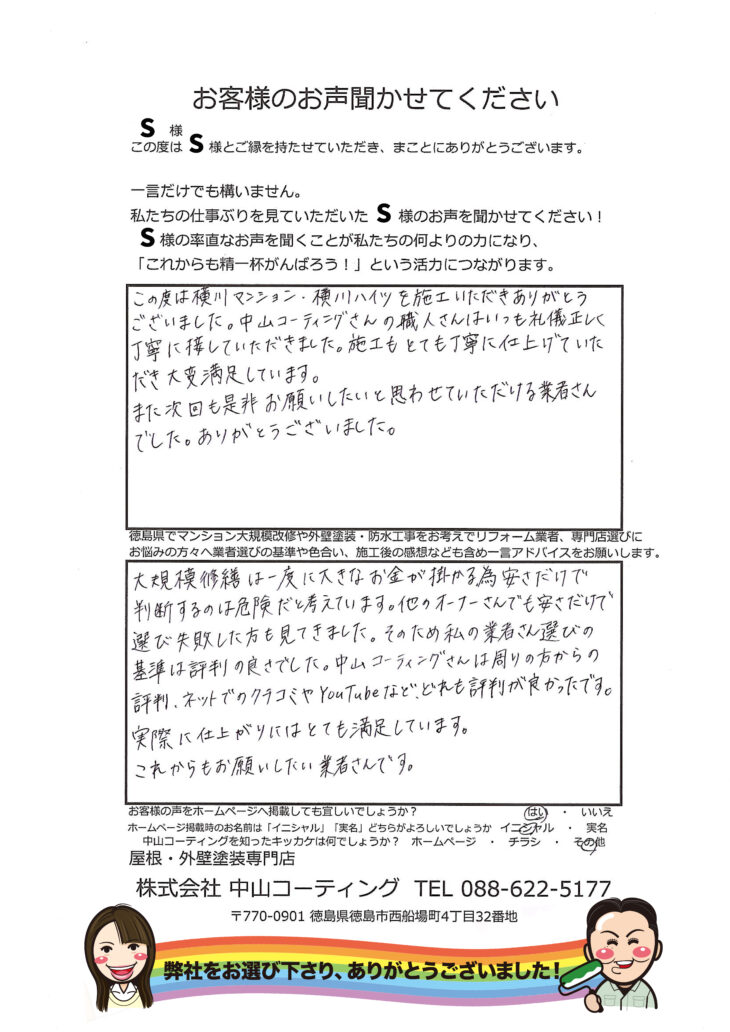 お客様のお声聞かせてください
S 様
この度は S 様とご縁を持たせていただき、まことにありがとうございます。
一言だけでも構いません。
私たちの仕事ぶりを見ていただいた S 様のお声を聞かせてください！
S 様の率直なお声を聞くことが私たちの何よりの力になり、
「これからも精一杯がんばろう！」という活力につながります。
この度は横川マンション・横川ハイツを施工いただきありがとう
ございました。中山コーティングさんの職人さんはいつも礼儀正しく
丁寧に接していただきました。施工もとても丁寧に仕上げていた
だき大変満足しています。
また次回も是非お願いしたいと思わせていただける業者さん
でした。ありがとうございました。
徳島県でマンション大規模改修や外壁塗装・防水工事をお考えでリフォーム業者、専門店選びに
お悩みの方々へ業者選びの基準や色合い、施工後の感想なども含め一言アドバイスをお願いします。
大規模修繕は一度に大きなお金が掛かる為安さだけで
判断するのは危険だと考えています。他のオーナーさんでも安さだけで
選び失敗した方も見てきました。そのため私の業者さん選びの
基準は評判の良さでした。中山コーティングさんは周りの方からの
評判、ネットでのクラコミやYouTubeなど、どれも評判が良かったです。
実際に仕上がりにはとても満足しています。
これからもお願いしたい業者さんです。
お客様の声をホームページへ掲載しても宜しいでしょうか？ はい ・ いいえ
ホームページ掲載時のお名前は「イニシャル」「実名」どちらがよろしいでしょうか イニシャル ・ 実名
中山コーティングを知ったキッカケは何でしょうか？ ホームページ ・ チラシ ・ その他
屋根・外壁塗装専門店
株式会社 中山コーティング TEL 088-622-5177
〒770-0901 徳島県徳島市西船場町4丁目32番地
弊社をお選び下さり、ありがとうございました！